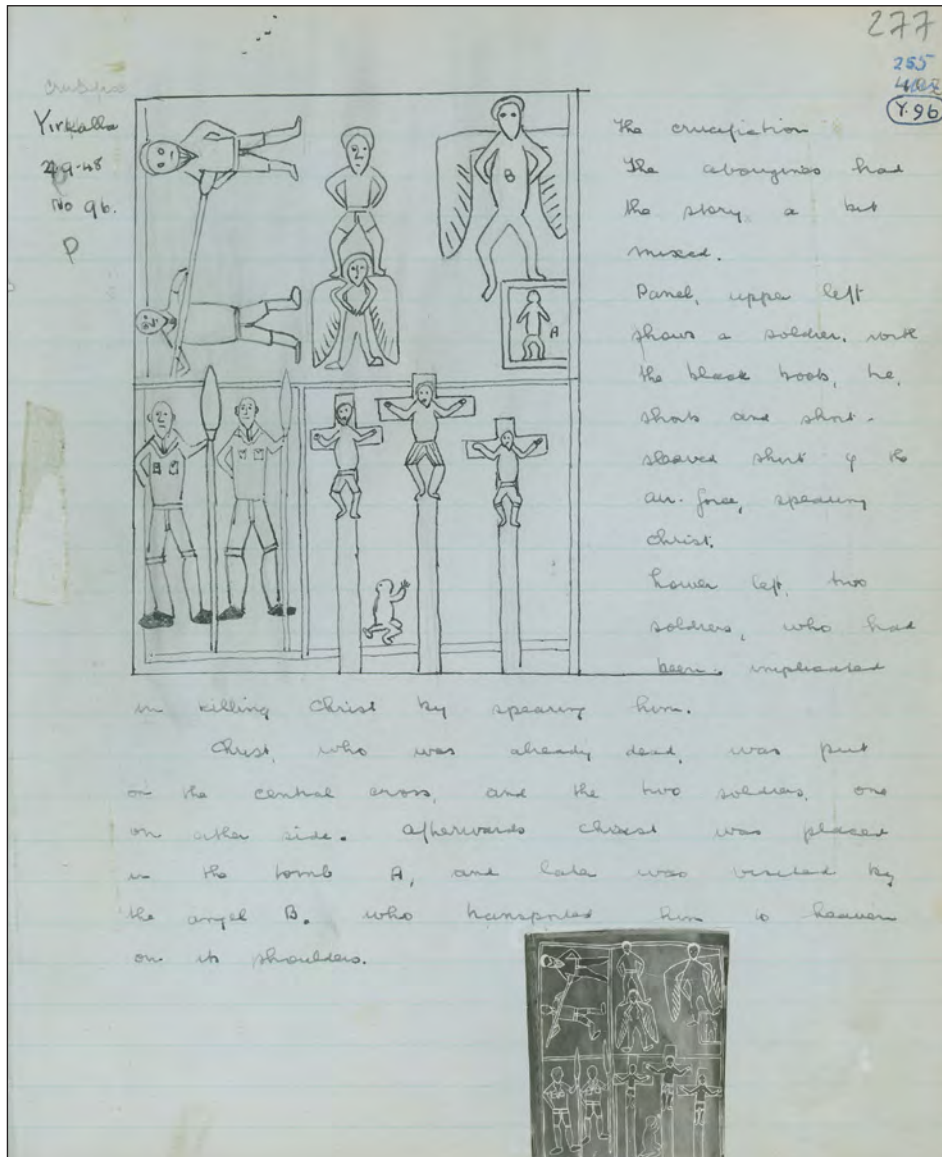 277
255
Y.96
Yirkalla
29-9-48
No 96.
P
B
A
The crucifiction
The aborigines had
the story a bit
mixed.
Panel, upper left
shows a soldier, with
the black boots, he,
shorts and short-
sleeved shirt of the
air-force, spearing
Christ.
Lower left, two
soldiers, who had
been implicated
in killing Christ by spearing him.
Christ, who was already dead, was put
on the central cross, and the two soldiers, one
on either side. Afterwards Christ was placed
in the tomb A, and later was visited by
the angel B. who transported him to heaven
on its shoulders.